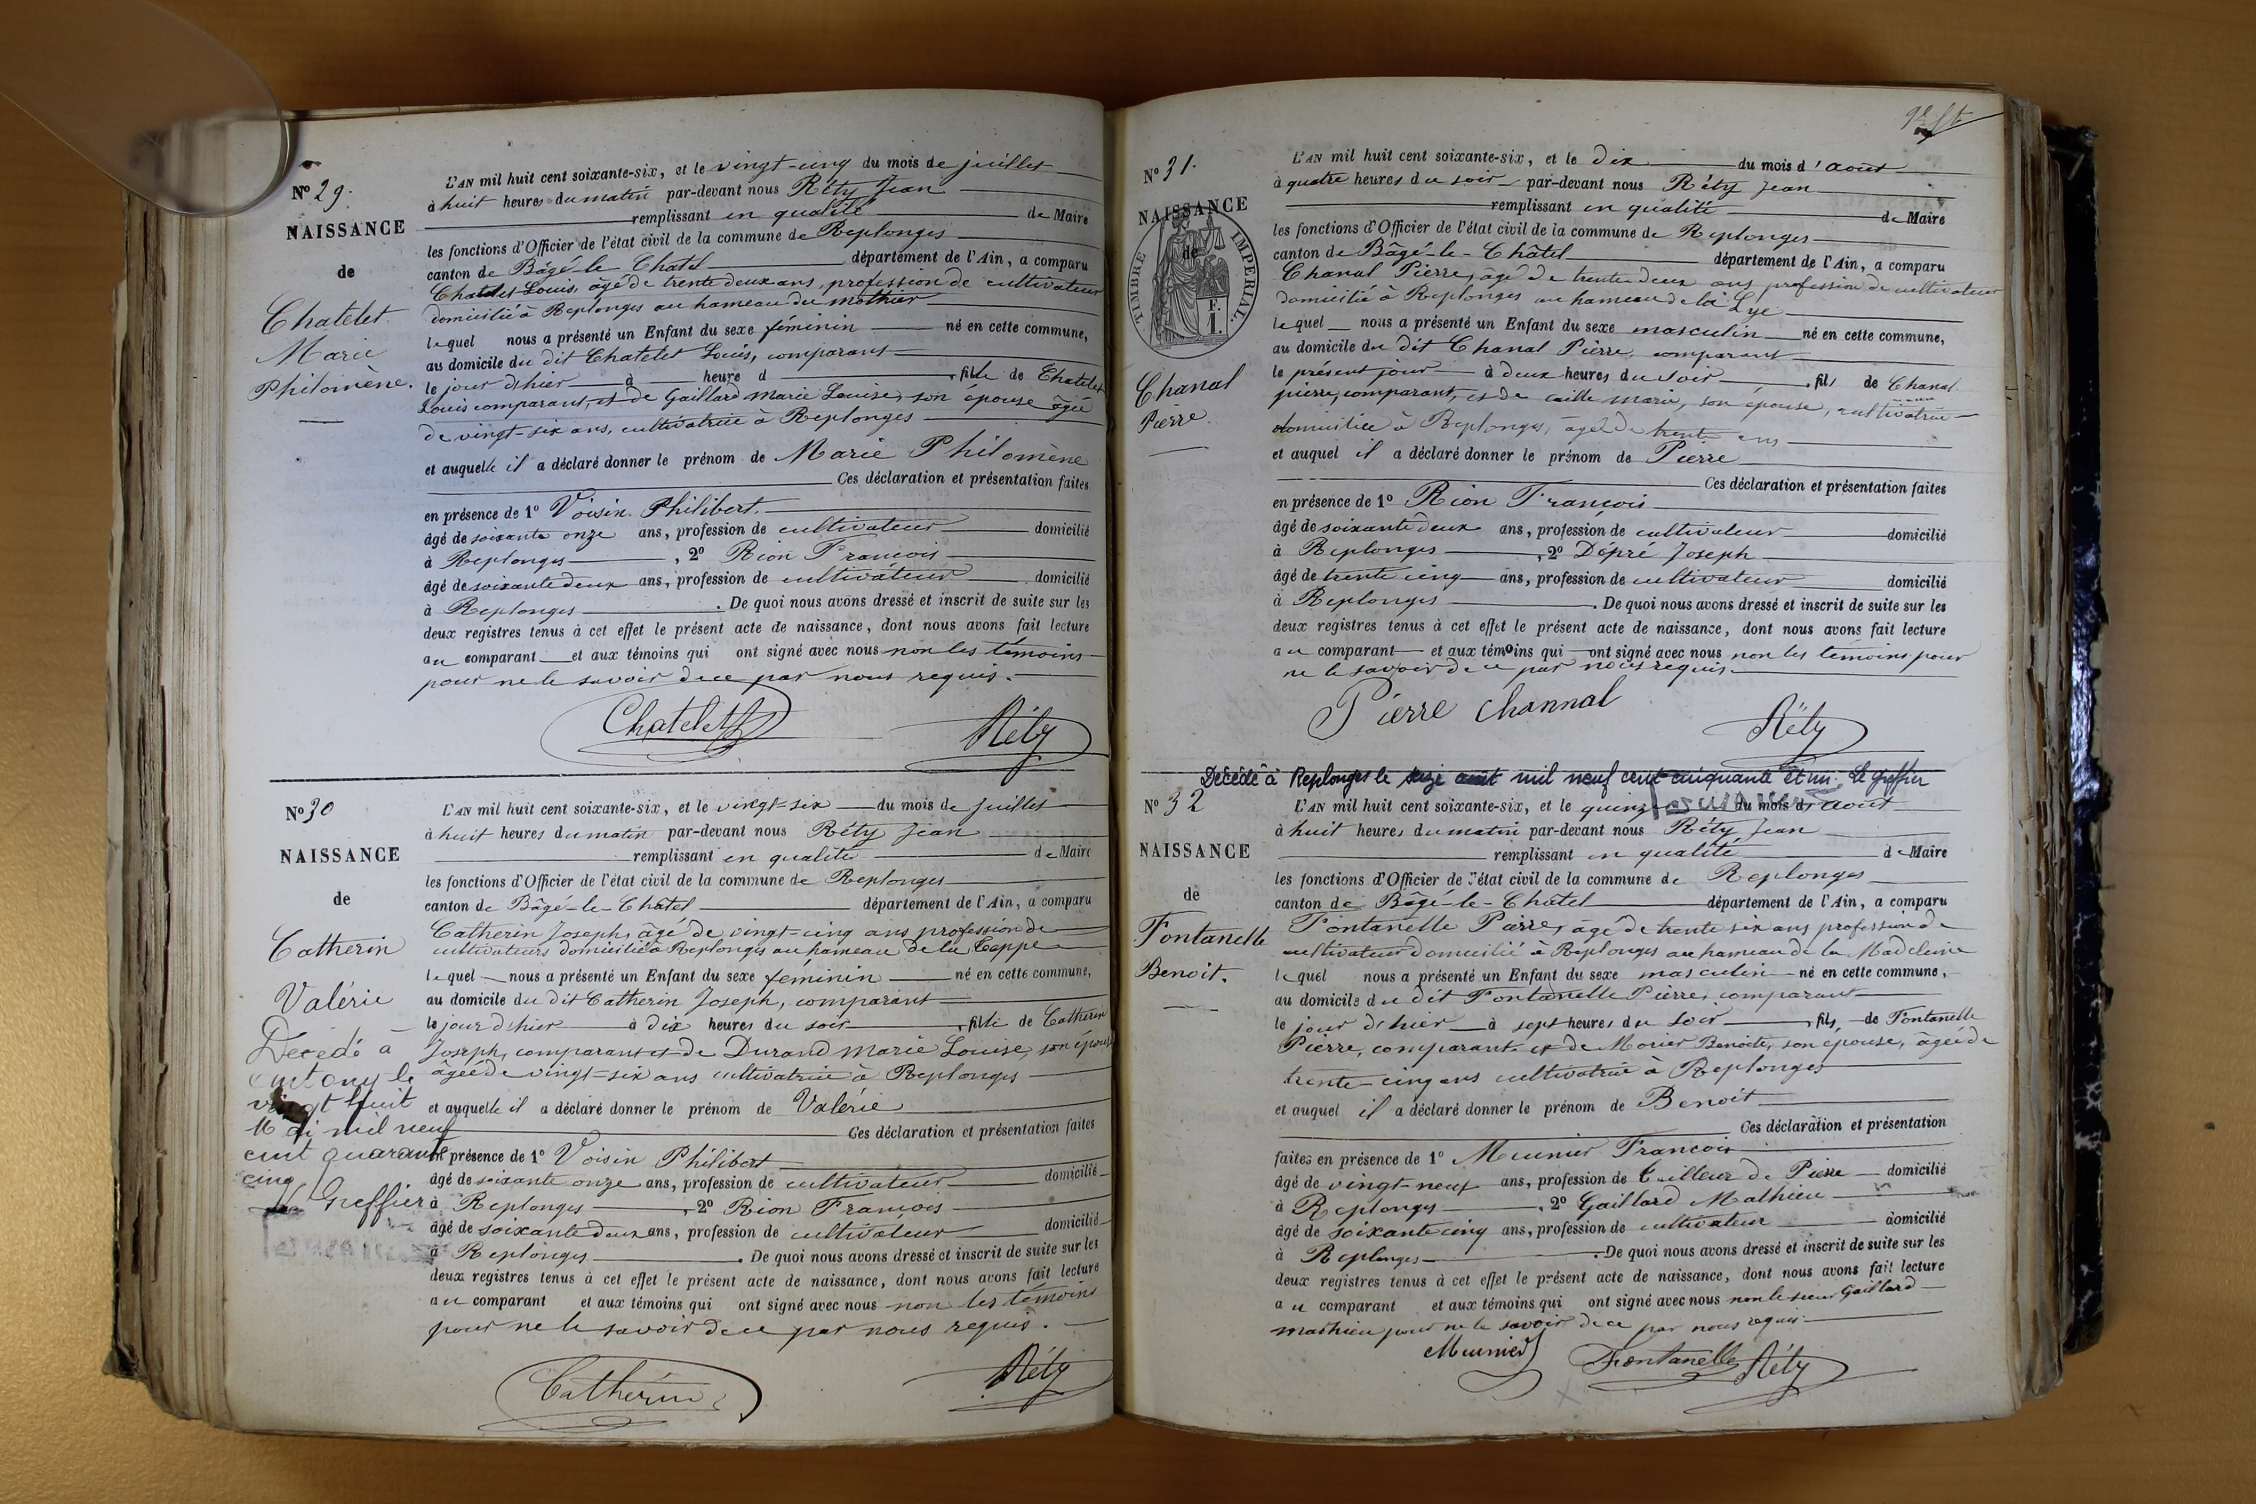 N° 29.
NAISSANCE
de
Chatelet
Marie
Philomène.
L'AN mil huit cent soixante-six, et le vingt-cinq du mois de juillet
à huit heures du matin par-devant nous Réty Jean
remplissant en qualité de Maire
les fonctions d'Officier de l'état civil de la commune de Replonges
canton de Bâgé-le-Chatel département de l'Ain, a comparu
Chatelet Louis, âgé de trente deux ans, profession de cultivateur
domicilié à Replonges au hameau du mothier
lequel nous a présenté un Enfant du sexe féminin né en cette commune,
au domicile du dit Chatelet Louis, comparant
le jour d'hier à heure d fille de Chatelet
Louis comparant, et de Gaillard Marie Louise, son épouse âgée
de vingt-six ans, cultivatrice à Replonges
et auquelle il a déclaré donner le prénom de Marie Philomène
Ces déclaration et présentation faites
en présence de 1° Voisin Philibert.
âgé de soixante onze ans, profession de cultivateur domicilié
à Replonges, 2° Rion François
âgé de soixante deux ans, profession de cultivateur domicilié
à Replonges. De quoi nous avons dressé et inscrit de suite sur les
deux registres tenus à cet effet le présent acte de naissance, dont nous avons fait lecture
au comparant et aux témoins qui ont signé avec nous non les témoins
pour ne le savoir de ce par nous requis.
Chatelet Réty
N° 30
NAISSANCE
de
Catherin
Valérie
Décédé à
Antony le
vingt huit
Mai mil neuf
cent quarante
cinq
Le Greffier
L'AN mil huit cent soixante-six, et le vingt-six du mois de juillet
à huit heures du matin par-devant nous Réty Jean
remplissant en qualité de Maire
les fonctions d'Officier de l'état civil de la commune de Replonges
canton de Bâgé-le-Chatel département de l'Ain, a comparu
Catherin Joseph, âgé de vingt-cinq ans profession de
cultivateurs domicilié à Replonges au hameau de la Teppe
lequel nous a présenté un Enfant du sexe féminin né en cette commune,
au domicile du dit Catherin Joseph, comparant
le jour d'hier à dix heures du soir, fille de Catherin
Joseph, comparant et de Durand Marie Louise, son épouse
âgée de vingt-six ans cultivatrice à Replonges
et auquelle il a déclaré donner le prénom de Valérie
Ces déclaration et présentation faites
en présence de 1° Voisin Philibert
âgé de soixante onze ans, profession de cultivateur domicilié
à Replonges, 2° Rion François
âgé de soixante deux ans, profession de cultivateur domicilié
à Replonges. De quoi nous avons dressé et inscrit de suite sur les
deux registres tenus à cet effet le présent acte de naissance, dont nous avons fait lecture
au comparant et aux témoins qui ont signé avec nous non les témoins
pour ne le savoir de ce par nous requis.
Catherin Réty
N° 31.
NAISSANCE
de
TIMBRE IMPERIAL
1 F.
Chanal
Pierre.
L'AN mil huit cent soixante-six, et le dix du mois d'août
à quatre heures du soir par-devant nous Réty Jean
remplissant en qualité de Maire
les fonctions d'Officier de l'état civil de la commune de Replonges
canton de Bâgé-le-Châtel département de l'Ain, a comparu
Chanal Pierre, âgé de trente deux ans, profession de cultivateur
domicilié à Replonges au hameau de la Lye
lequel nous a présenté un Enfant du sexe masculin né en cette commune,
au domicile du dit Chanal Pierre, comparant
le présent jour à deux heures du soir, fils de Chanal
pierre, comparant, et de caille marie, son épouse, cultivatrice
domiciliée à Replonges, âgée de trente ans
et auquel il a déclaré donner le prénom de Pierre
Ces déclaration et présentation faites
en présence de 1° Rion François
âgé de soixante deux ans, profession de cultivateur domicilié
à Replonges, 2° Dépré Joseph
âgé de trente cinq ans, profession de cultivateur domicilié
à Replonges. De quoi nous avons dressé et inscrit de suite sur les
deux registres tenus à cet effet le présent acte de naissance, dont nous avons fait lecture
au comparant et aux témoins qui ont signé avec nous non les témoins pour
ne le savoir de ce par nous requis.
Pierre Channal Réty
Décédé à Replonges le seize août mil neuf cent cinquante et un. Le greffier
N° 32
NAISSANCE
de
Fontanelle
Benoit.
L'AN mil huit cent soixante-six, et le quinze du mois d'août
à huit heures du matin par-devant nous Réty Jean
remplissant en qualité de Maire
les fonctions d'Officier de l'état civil de la commune de Replonges
canton de Bâgé-le-Châtel département de l'Ain, a comparu
Fontanelle Pierre, âgé de trente six ans profession de
cultivateur domicilié à Replonges au hameau de la Madeleine
lequel nous a présenté un Enfant du sexe masculin né en cette commune,
au domicile du dit Fontanelle Pierre, comparant
le jour d'hier à sept heures du soir, fils de Fontanelle
Pierre, comparant et de Morier Benoite, son épouse, âgée de
trente-cinq ans cultivatrice à Replonges
et auquel il a déclaré donner le prénom de Benoit
Ces déclaration et présentation
faites en présence de 1° Meunier François
âgé de vingt-neuf ans, profession de tailleur de Pierre domicilié
à Replonges, 2° Gaillard Mathieu
âgé de soixante cinq ans, profession de cultivateur domicilié
à Replonges. De quoi nous avons dressé et inscrit de suite sur les
deux registres tenus à cet effet le présent acte de naissance, dont nous avons fait lecture
au comparant et aux témoins qui ont signé avec nous non le sieur Gaillard
mathieu pour ne le savoir de ce par nous requis
Meunier Fontanelle Réty